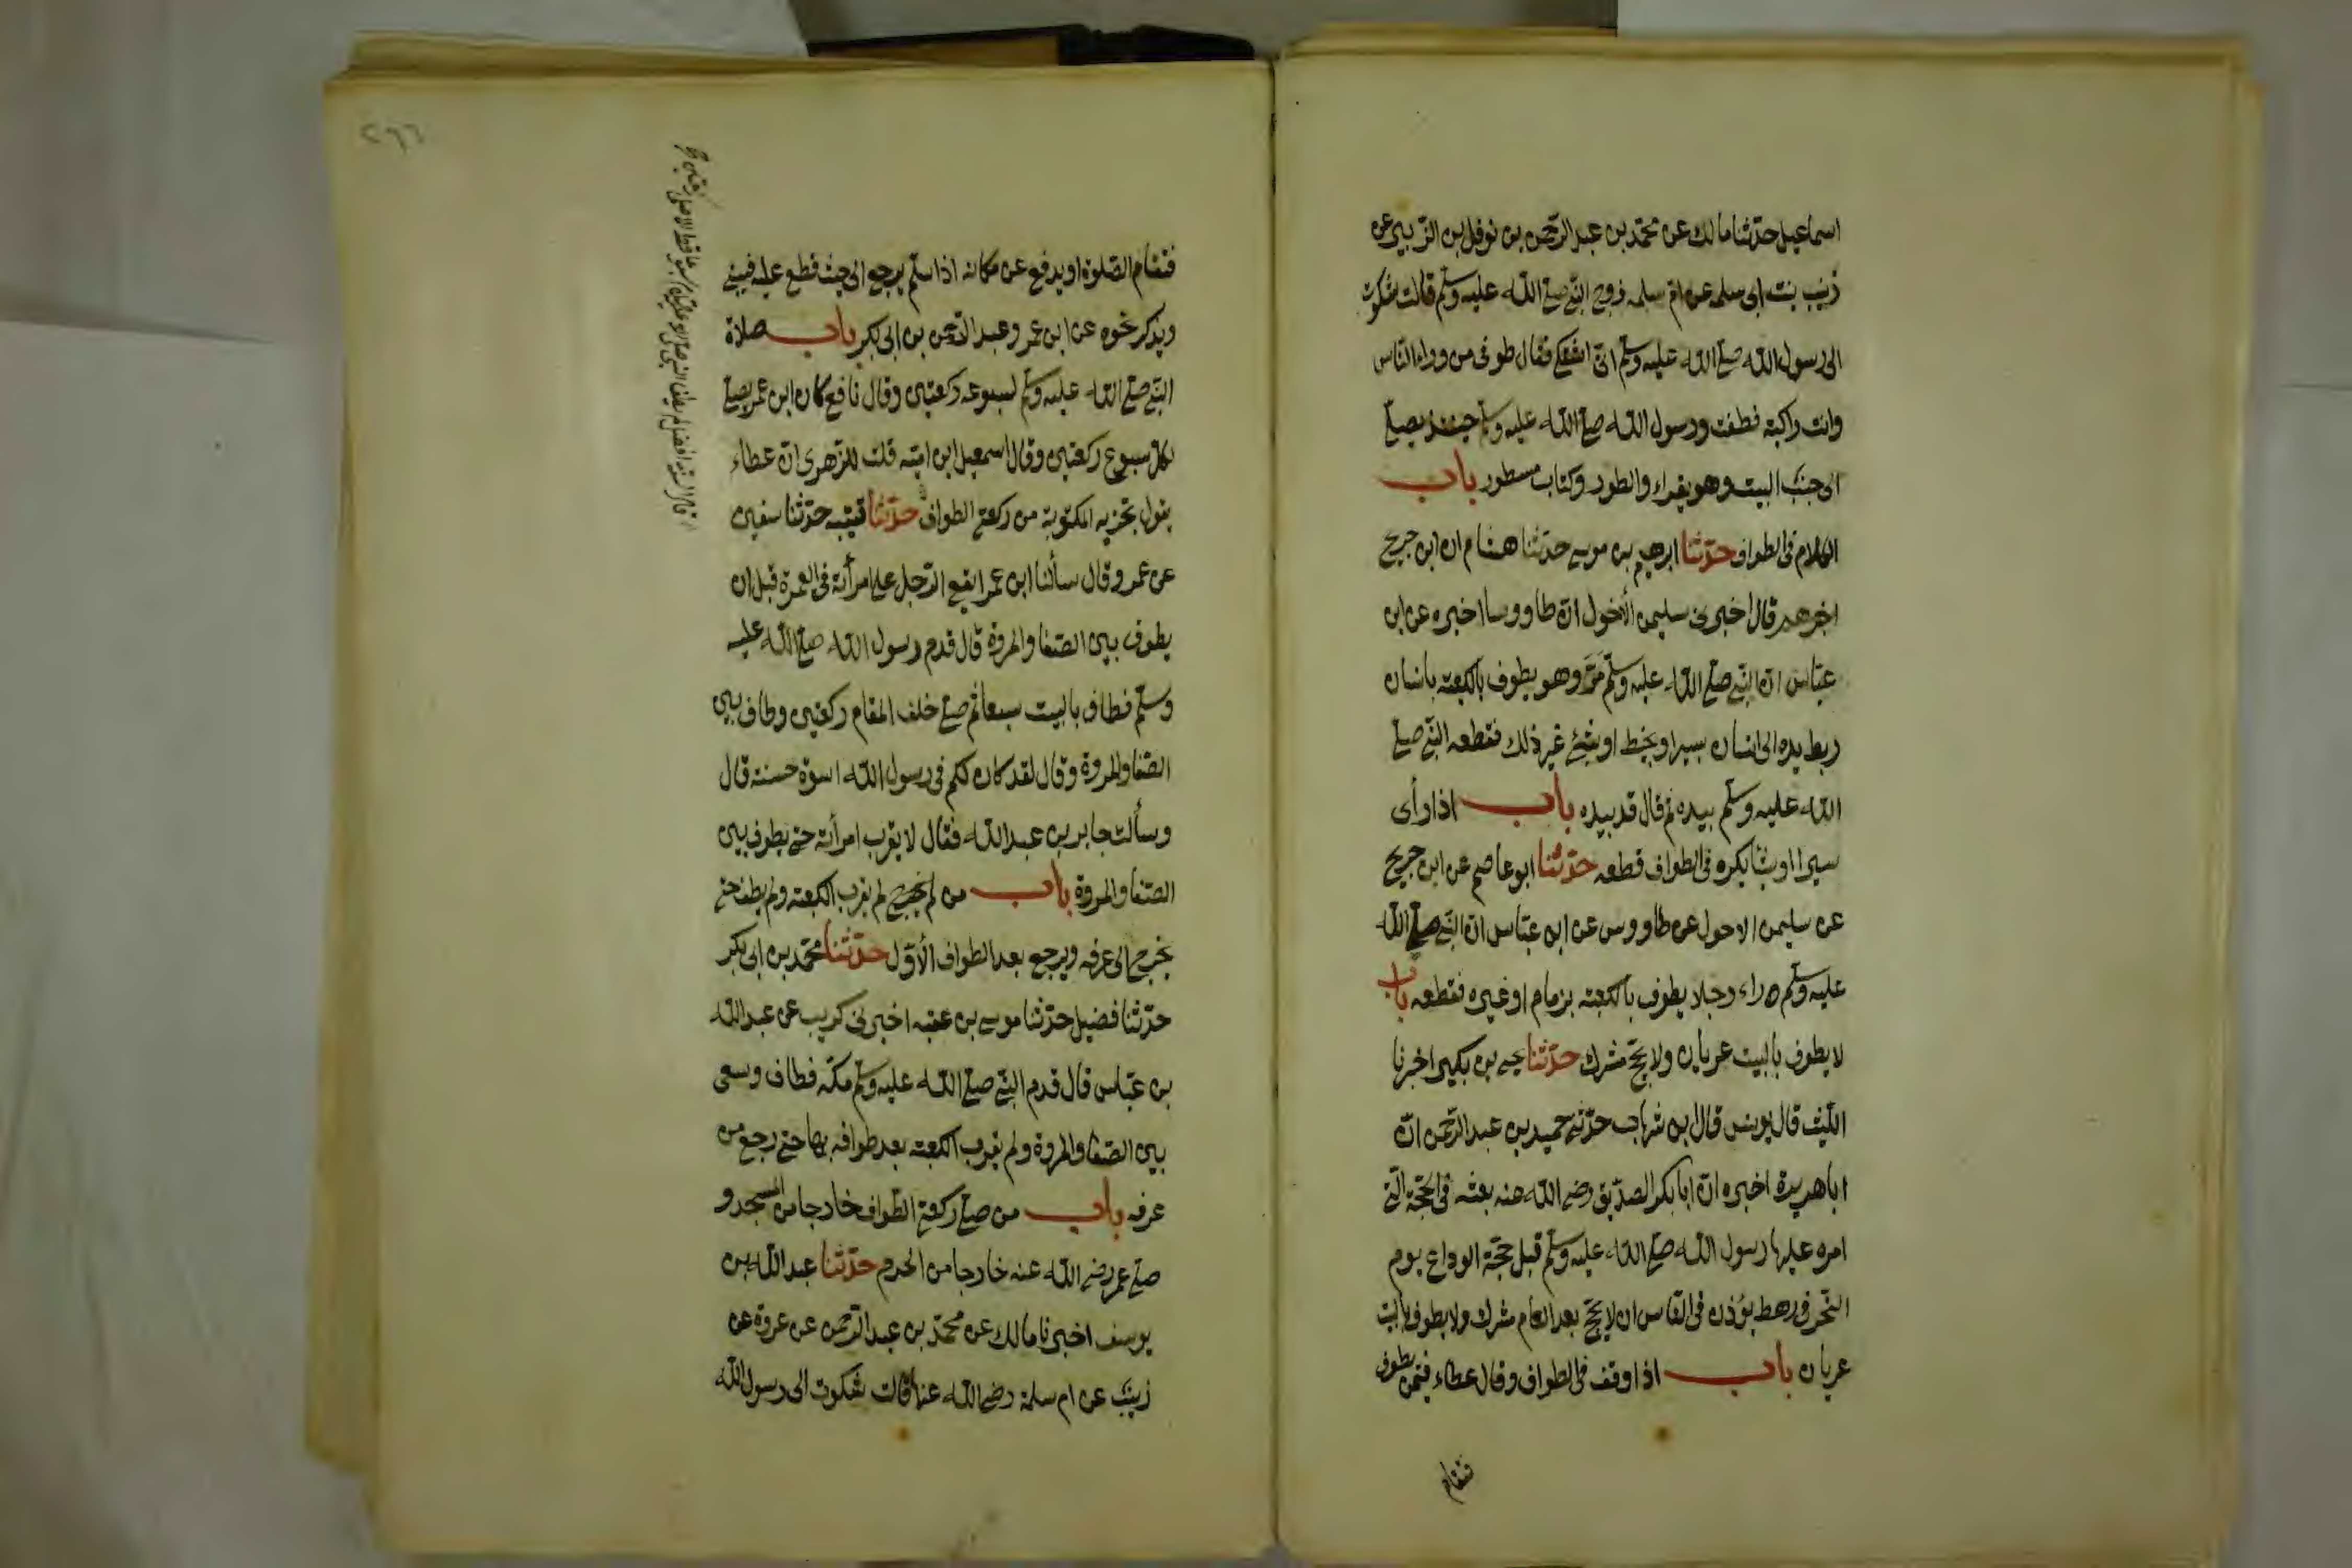 اسماعيل حدّثنا مالك عن محمّد بن عبد الرّحمن بن نوفل بن الزّبير عن
زينب بنت ابى سلمه عن امّ سلمه زوج النّبى صلّى اللّه عليه وسلّم قالت شكوت
الى رسول اللّه صلّى اللّه عليه وسلّم انّى اشتكى فقال طوفى من وراء النّاس
وانت راكبة فطفت ورسول اللّه صلّى اللّه عليه وسلّم حينئذ يصلّى
الى جنب البيت وهو يقراء والطور وكتاب مسطور باب
الكلام فى الطواف حدّثنا ابرهيم بن موسى حدّثنا هشام ان ابن جريج
اخبرهم قال اخبرنى سليمن الأحول انّ طاووسا اخبره عن ابن
عبّاس انّ النّبى صلّى اللّه عليه وسلّم مرّ وهو يطوف بالكعبة بانسان
ربط يده الى انسان بسير او بخيط او بشئ غير ذلك فقطعه النّبى صلّى
اللّه عليه وسلّم بيده ثم قال قد بيده باب اذا رأى
سيرا او شيئا يكره فى الطواف قطعه حدّثنا ابو عاصم عن ابن جريج
عن سليمن الاحول عن طاووس عن ابن عبّاس انّ النّبى صلّى اللّه
عليه وسلّم راء رجلا يطوف بالكعبة بزمام او غيره فقطعه باب
لا يطوف بالبيت عريان ولا يحجّ مشرك حدّثنا يحيى بن بكير اخبرنا
اللّيث قال يونس قال ابن شهاب حدّثنى حميد بن عبد الرّحمن انّ
ابا هريرة اخبره انّ ابا بكر الصدّيق رضى اللّه عنه بعثه فى الحجّة الّتى
امره عليها رسول اللّه صلّى اللّه عليه وسلّم قبل حجّة الوداع يوم
النّحر فى رهط يؤذن فى النّاس ان لا يحجّ بعد العام مشرك ولا يطوف بالبيت
عريان باب اذا وقف فى الطواف وقال عطاء فيمن يطوف
فتقام
٢٦٦
فتقام الصّلوة او يدفع عن مكانه اذا سلّم يرجع الى حيث قطع عليه فيبنى
ويذكر نحوه عن ابن عمر وعبد الرّحمن بن ابى بكر باب صلاة
النّبى صلّى اللّه عليه وسلّم لسبوعه ركعتين وقال نافع كان ابن عمر يصلّى
لكل سبوع ركعتين وقال اسمعيل ابن اميّه قلت للزهرى انّ عطاء
يقول تجزيه المكتوبة من ركعتى الطواف حدّثنا قتيبه حدّثنا سفين
عن عمرو قال سألنا ابن عمر ايقع الرّجل على امرأته فى العمرة قبل ان
يطوف بين الصّفا والمروة قال قدم رسول اللّه صلّى اللّه عليه
وسلّم فطاف بالبيت سبعا ثم صلّى خلف المقام ركعتين وطاف بين
الصّفا والمروة وقال لقد كان لكم فى رسول اللّه اسوة حسنة قال
وسألت جابر بن عبد اللّه فقال لا يقرب امرأته حتّى يطوف بين
الصّفا والمروة باب من لم يقرب الكعبة ولم يطف حتّى
يخرج الى عرفه ويرجع بعد الطواف الأوّل حدّثنا محمّد بن ابى بكر
حدّثنا فضيل حدّثنا موسى بن عقبه اخبرنى كريب عن عبد اللّه
بن عبّاس قال قدم النّبى صلّى اللّه عليه وسلّم مكّه فطاف وسعى
بين الصّفا والمروة ولم يقرب الكعبة بعد طوافه بها حتّى رجع من
عرفه باب من صلّى ركعتى الطّواف خارجا من المسجد و
صلّى عمر رضى اللّه عنه خارجا من الحرم حدّثنا عبد اللّه بن
يوسف اخبرنا مالك عن محمّد بن عبد الرّحمن عن عروة عن
زينب عن ام سلمة رضى اللّه عنها قالت شكوت الى رسول اللّه